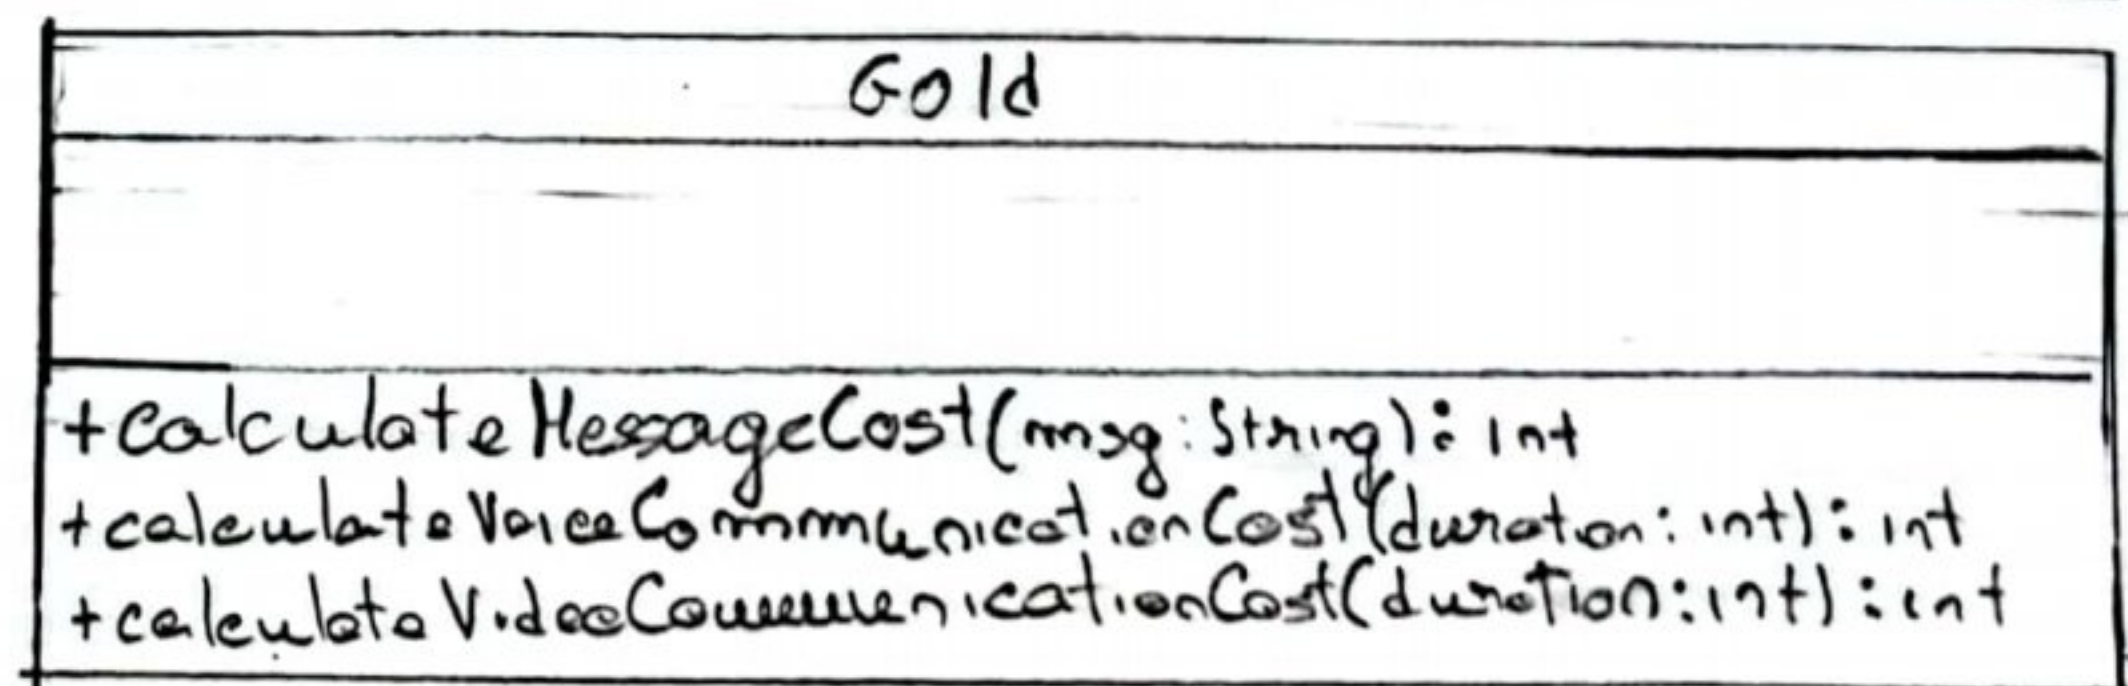 Gold
+calculateMessageCost(msg:String): int
+calculateVoiceCommunicationCost(duration: int): int
+calculateVideoCommunicationCost(duration:int): int